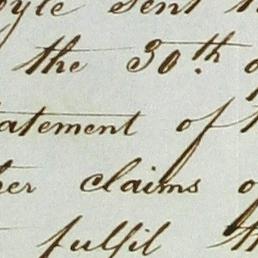 oyle sent
the 30th
atement of
her claims
fulfil th